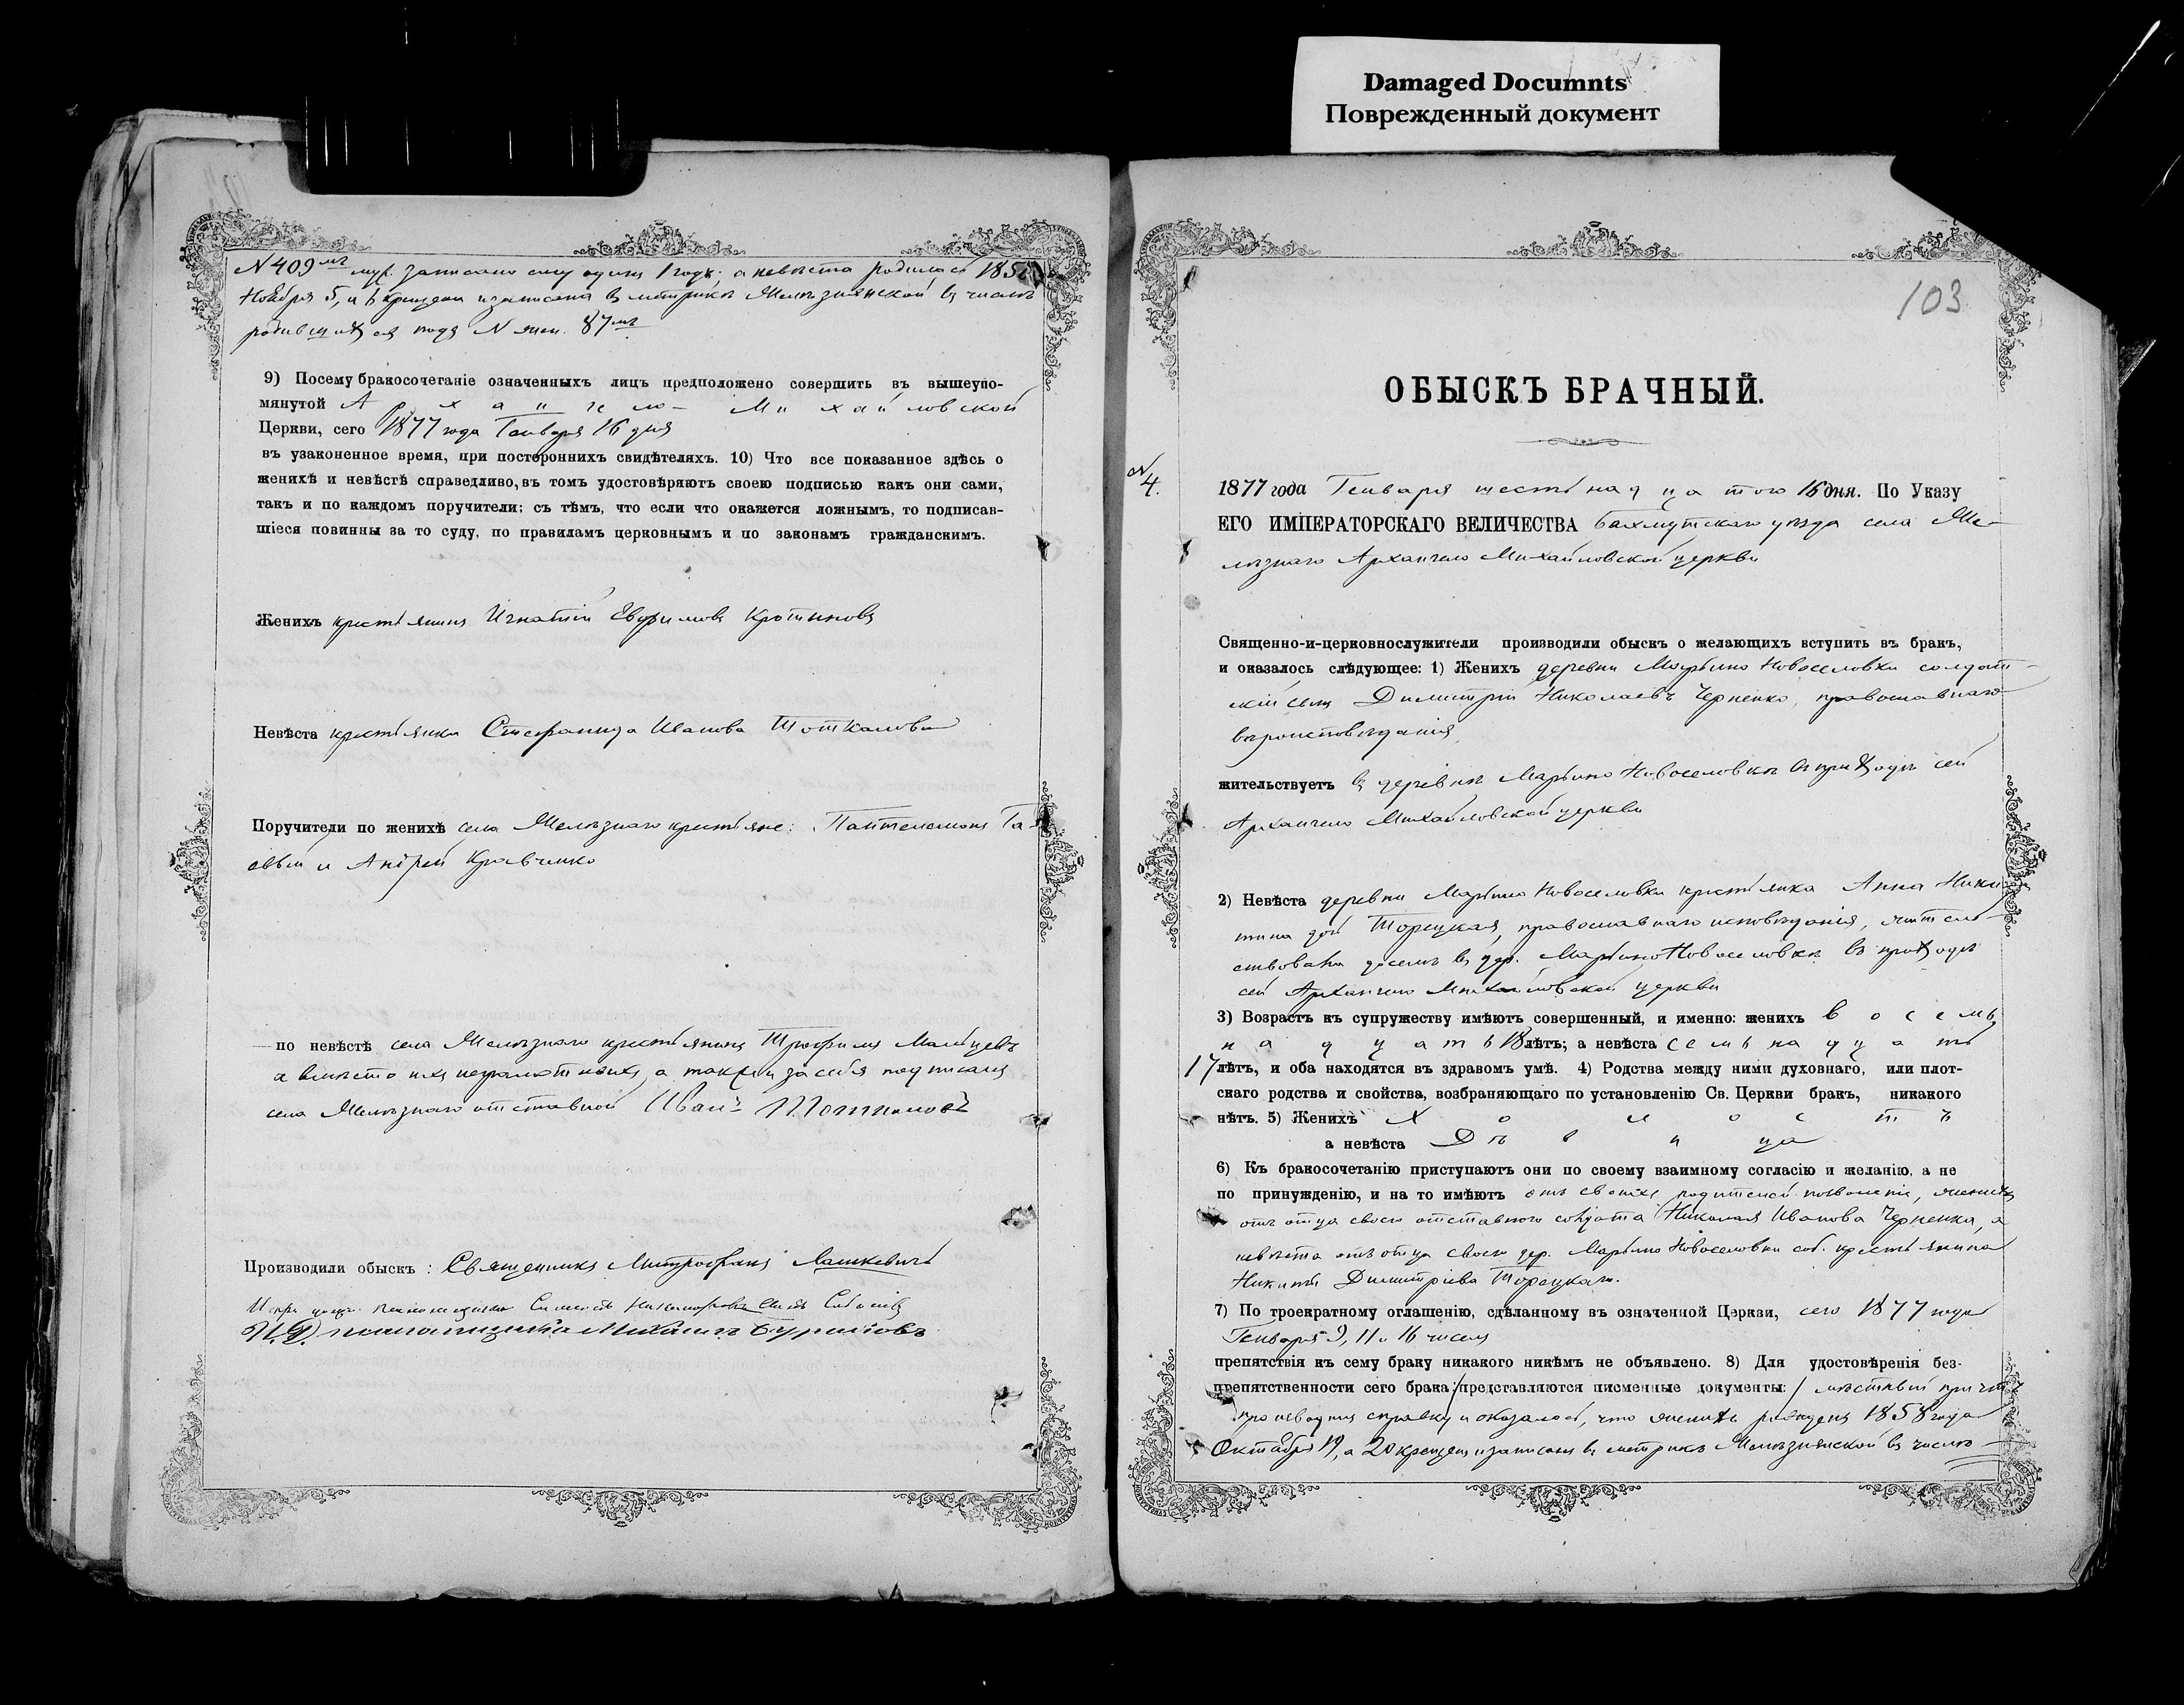 Damaged Documnts
Поврежденный документ
N 409 мъ муж. записано ему одинъ годъ. а невѣста родилась 185
Ноября 5, и 6 крещена и записана въ метрикѣ Желѣзнянской въ числѣ
родившихся подъ N жен. 87мъ
9) Посему бракосочетаніе означенныхъ лицъ предположено совершить въ вышеупо-
мянутой Архангело-Михайловской
Церкви, сего 1877 года Генваря 16 дня
въ узаконенное время, при постороннихъ свидѣтеляхъ. 10) Что все показанное здѣсь о
женихѣ и невѣстѣ справедливо, въ томъ удостовѣряютъ своею подписью какъ они сами,
такъ и по каждомъ поручители; съ тѣмъ, что если что окажется ложнымъ, то подписав-
шіеся повинны за то суду, по правиламъ церковнымъ и по законамъ гражданскимъ.
Женихъ крестьянинъ Игнатій Евфимовъ
Невѣста крестьянка Стефанида Иванова
Поручители по женихѣ села Желѣзнаго крестьяне: Пантелеимонъ
и Андрей Кравченко
по невѣстѣ села Желѣзнаго крестьянинъ Трофимъ Мальцевъ
а вмѣсто ихъ неграмотныхъ, а также и за себя подписался
села Желѣзнаго отставной Иванъ
Производили обыскъ: Священникъ Митрофанъ Лашкевичъ
И. Д. псаломщика Михаилъ
103
ОБЫСКЪ БРАЧНЫЙ.
N 4.
1877 года Генваря шестьнадцатого 16 дня. По Указу
ЕГО ИМПЕРАТОРСКАГО ВЕЛИЧЕСТВА Бахмутскаго уѣзда села Же-
лѣзнаго Архангело Михайловской церкви
Священно-и-церковнослужители производили обыскъ о желающихъ вступить въ бракъ,
и оказалось слѣдующее: 1) Женихъ деревни Марьино Новоселовки солдат-
скій сынъ Димитрій Николаевъ Черненко, православнаго
вѣроисповѣданія
жительствуетъ въ деревнѣ Марьино Новоселовкѣ въ приходѣ сей
Архангело Михайловской церкви
2) Невѣста деревни Марьино Новоселовки крестьянка Анна Ники
тина дочь Торецкая, православнаго исповѣданія, жительствовала доселѣ въ дер. Марьино Новоселовкѣ въ приходѣ
сей Архангело Михайловской церкви
3) Возрастъ къ супружеству имѣютъ совершенный, и именно: женихъ восемь
надцать 18 лѣтъ; а невѣста семьнадцать
17 лѣтъ, и оба находятся въ здравомъ умѣ. 4) Родства между ними духовнаго, или плот-
скаго родства и свойства, возбраняющаго по установленію Св. Церкви бракъ, никакого
нѣтъ. 5) Женихъ Холостъ
а невѣста Дѣвица
6) Къ бракосочетанію приступаютъ они по своему взаимному согласію и желанію, а не
по принужденію, и на то имѣютъ отъ своихъ родителей позволеніе, женихъ
отъ отца своего отставного солдата Николая Иванова Черненка, а
невѣста отъ отца своего дер. Марьино Новоселовки соб. крестьянина
Никиты Димитріева Торецкаго.
7) По троекратному оглашенію, сдѣланному въ означенной Церкви, сего 1877 года
Генваря 9, 11 и 16 числа
препятствія къ сему браку никакого никѣмъ не объявлено. 8) Для удостовѣренія без-
препятственности сего брака: представляются писменные документы: мѣстный причтъ
производилъ справку и оказалось, что женихъ рожденъ 1858 года
Октября 19, а 20 крещенъ и записанъ въ метрикѣ Желѣзнянской въ числѣ